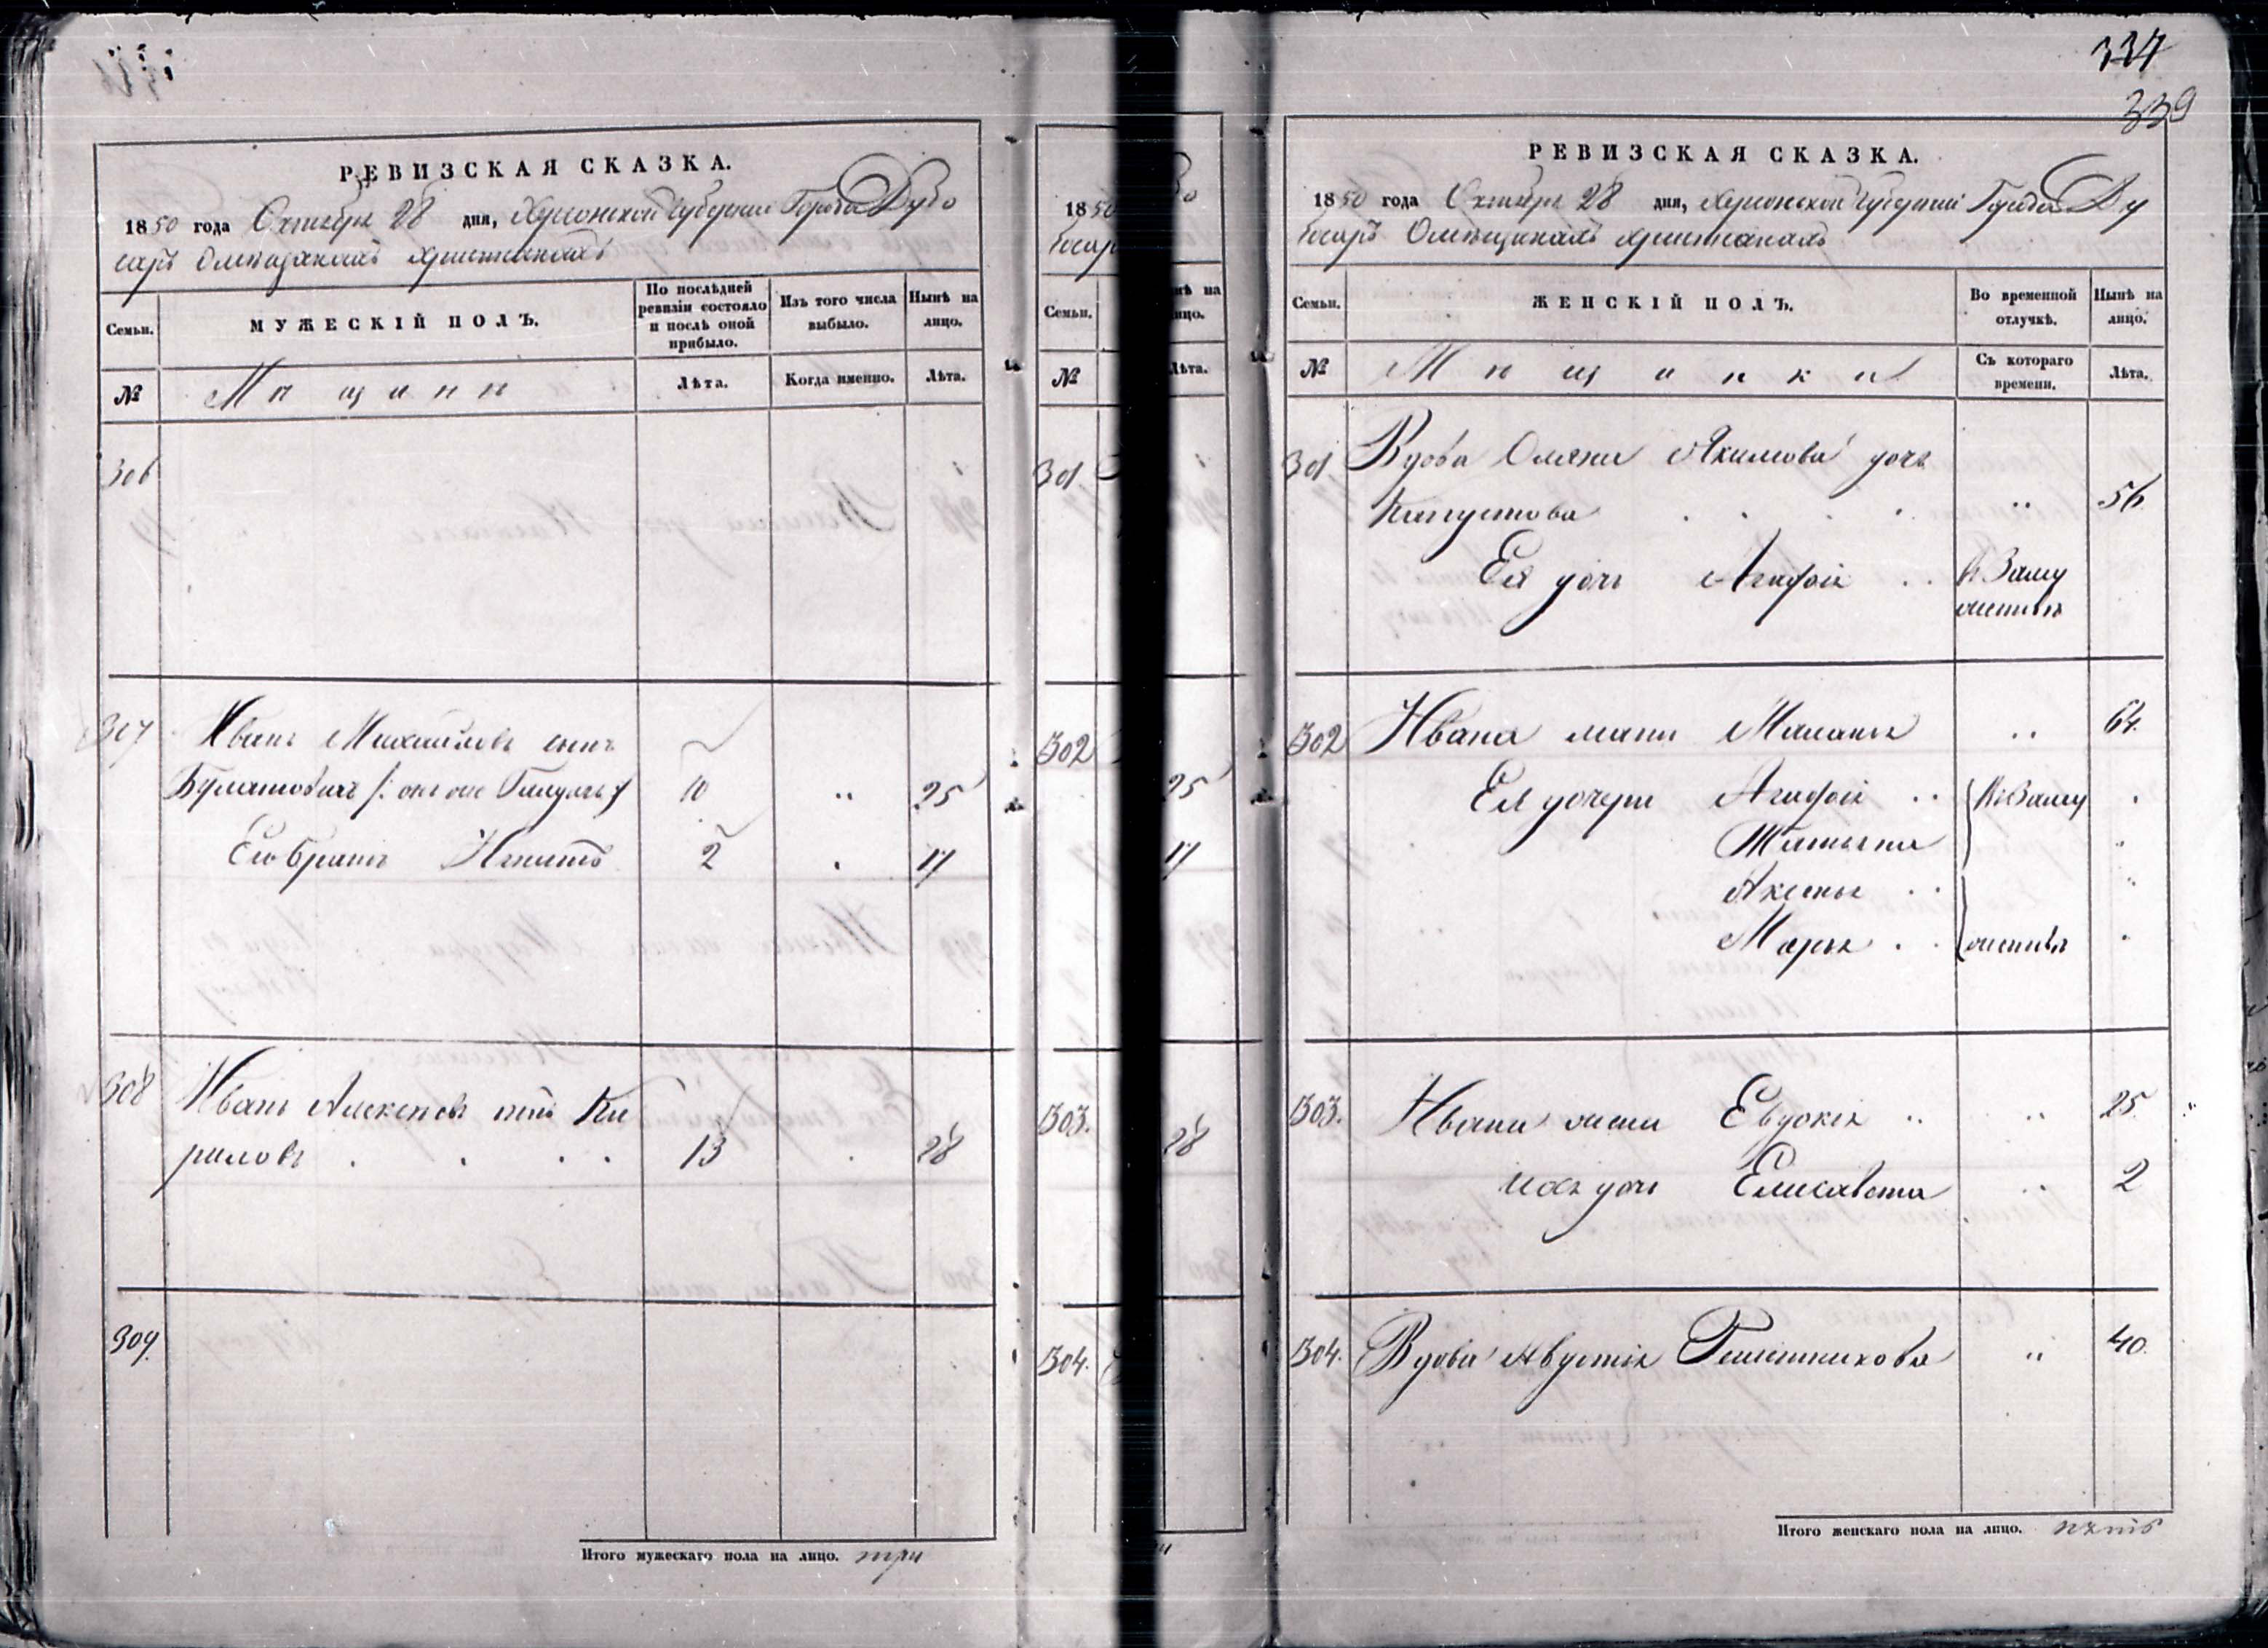 РЕВИЗСКАЯ СКАЗКА.
1850 года Октября 28 дня, Херсонской Губернии Города Дубо
саръ Омѣщанахъ христианахъ
Семьи.
МУЖЕСКІЙ ПОЛЪ.
По послѣдней ревизіи состояло и послѣ оной прибыло.
Изъ того числа выбыло.
Нынѣ на лицо.
№
Мѣщанѣ
Лѣта.
Когда именно.
Лѣта.
306
307 Иванъ Михайловъ сынъ
10 .. 25
Его братъ Игнатъ 2 . 17
308 Иванъ Алексѣевъ сынъ Ки
риловъ . . . . 13 . 28
309.
Итого мужескаго пола на лицо. три
1850
Семьи.
№
Лѣта.
301
302
25
17
303.
28
304.
334
339
РЕВИЗСКАЯ СКАЗКА.
1850 года Октября 28 дня, Херсонской Губерніи Города Ду
босаръ Омѣщанахъ христианахъ
Семьи.
ЖЕНСКІЙ ПОЛЪ.
Во временной отлучкѣ.
Нынѣ на лицо.
№
Мѣщанки
Съ котораго времени.
Лѣта.
301 Вдова Акимова дочь
Капустова . . . . .. 56
Ея дочь Агафія .. Взаму
жествѣ
302 Ивана мать Маланья .. 64.
Ея дочери Агафія .. Взаму .
Татьяна .
Аксенья .. ..
Марья . . жествѣ .
303. Ивана жена Евдокія .. .. 25.
Ихъ дочь Елисавета .. 2
304. Вдова Решетникова .. 40.
Итого женскаго пола на лицо. пять